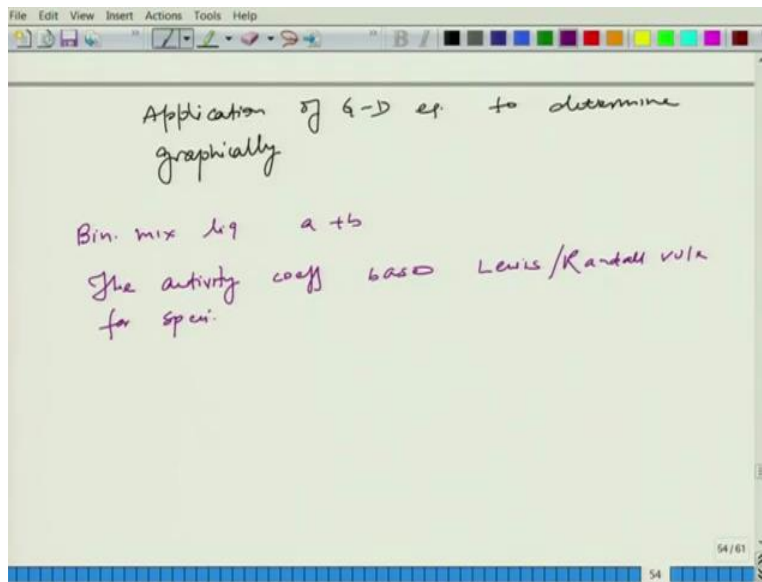 File Edit View Insert Actions Tools Help
Application of G-D eq. to determine
graphically
Bin. mix liq a + b
The activity coeff base Lewis/Randall rule
for speci.
54/61
54